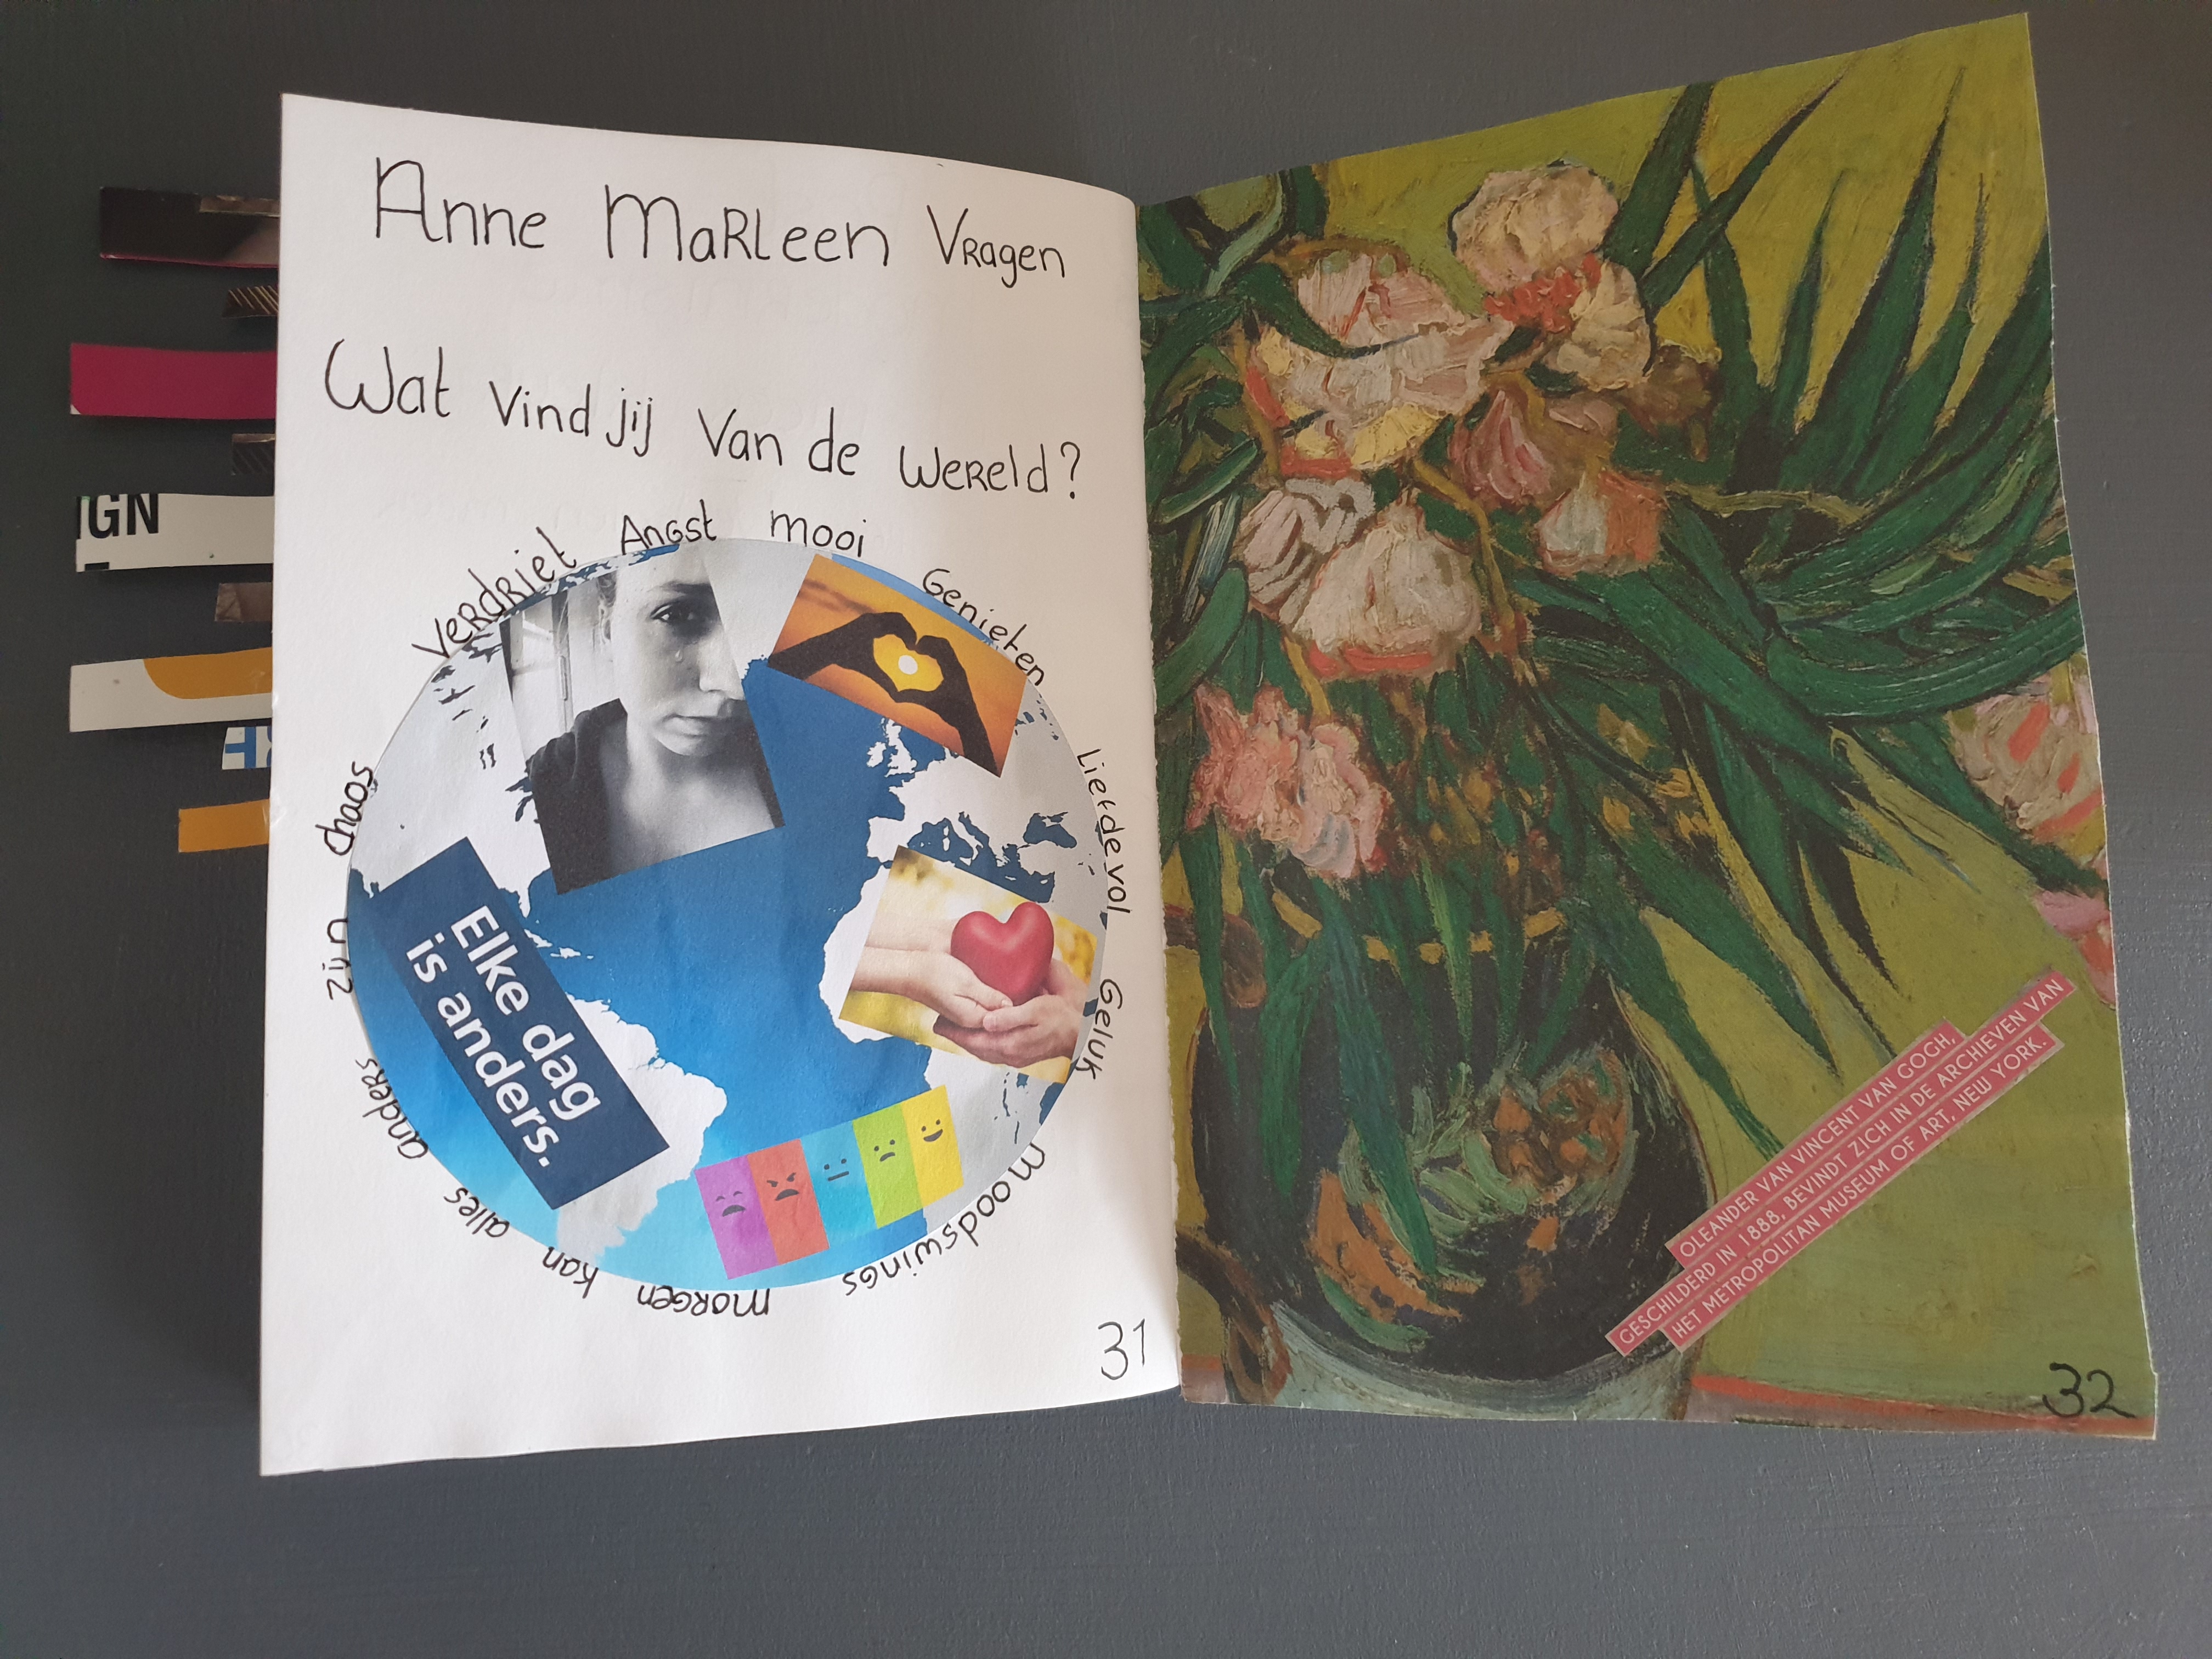 Anne Marleen Vragen
Wat vind jij van de wereld?
Verdriet Angst mooi Genieten Liefdevol Geluk moodswings morgen kan alles anders zijn chaos
Elke dag
is anders.
31
IGN
OLEANDER VAN VINCENT VAN GOGH,
GESCHILDERD IN 1888, BEVINDT ZICH IN DE ARCHIEVEN VAN
HET METROPOLITAN MUSEUM OF ART, NEW YORK.
32